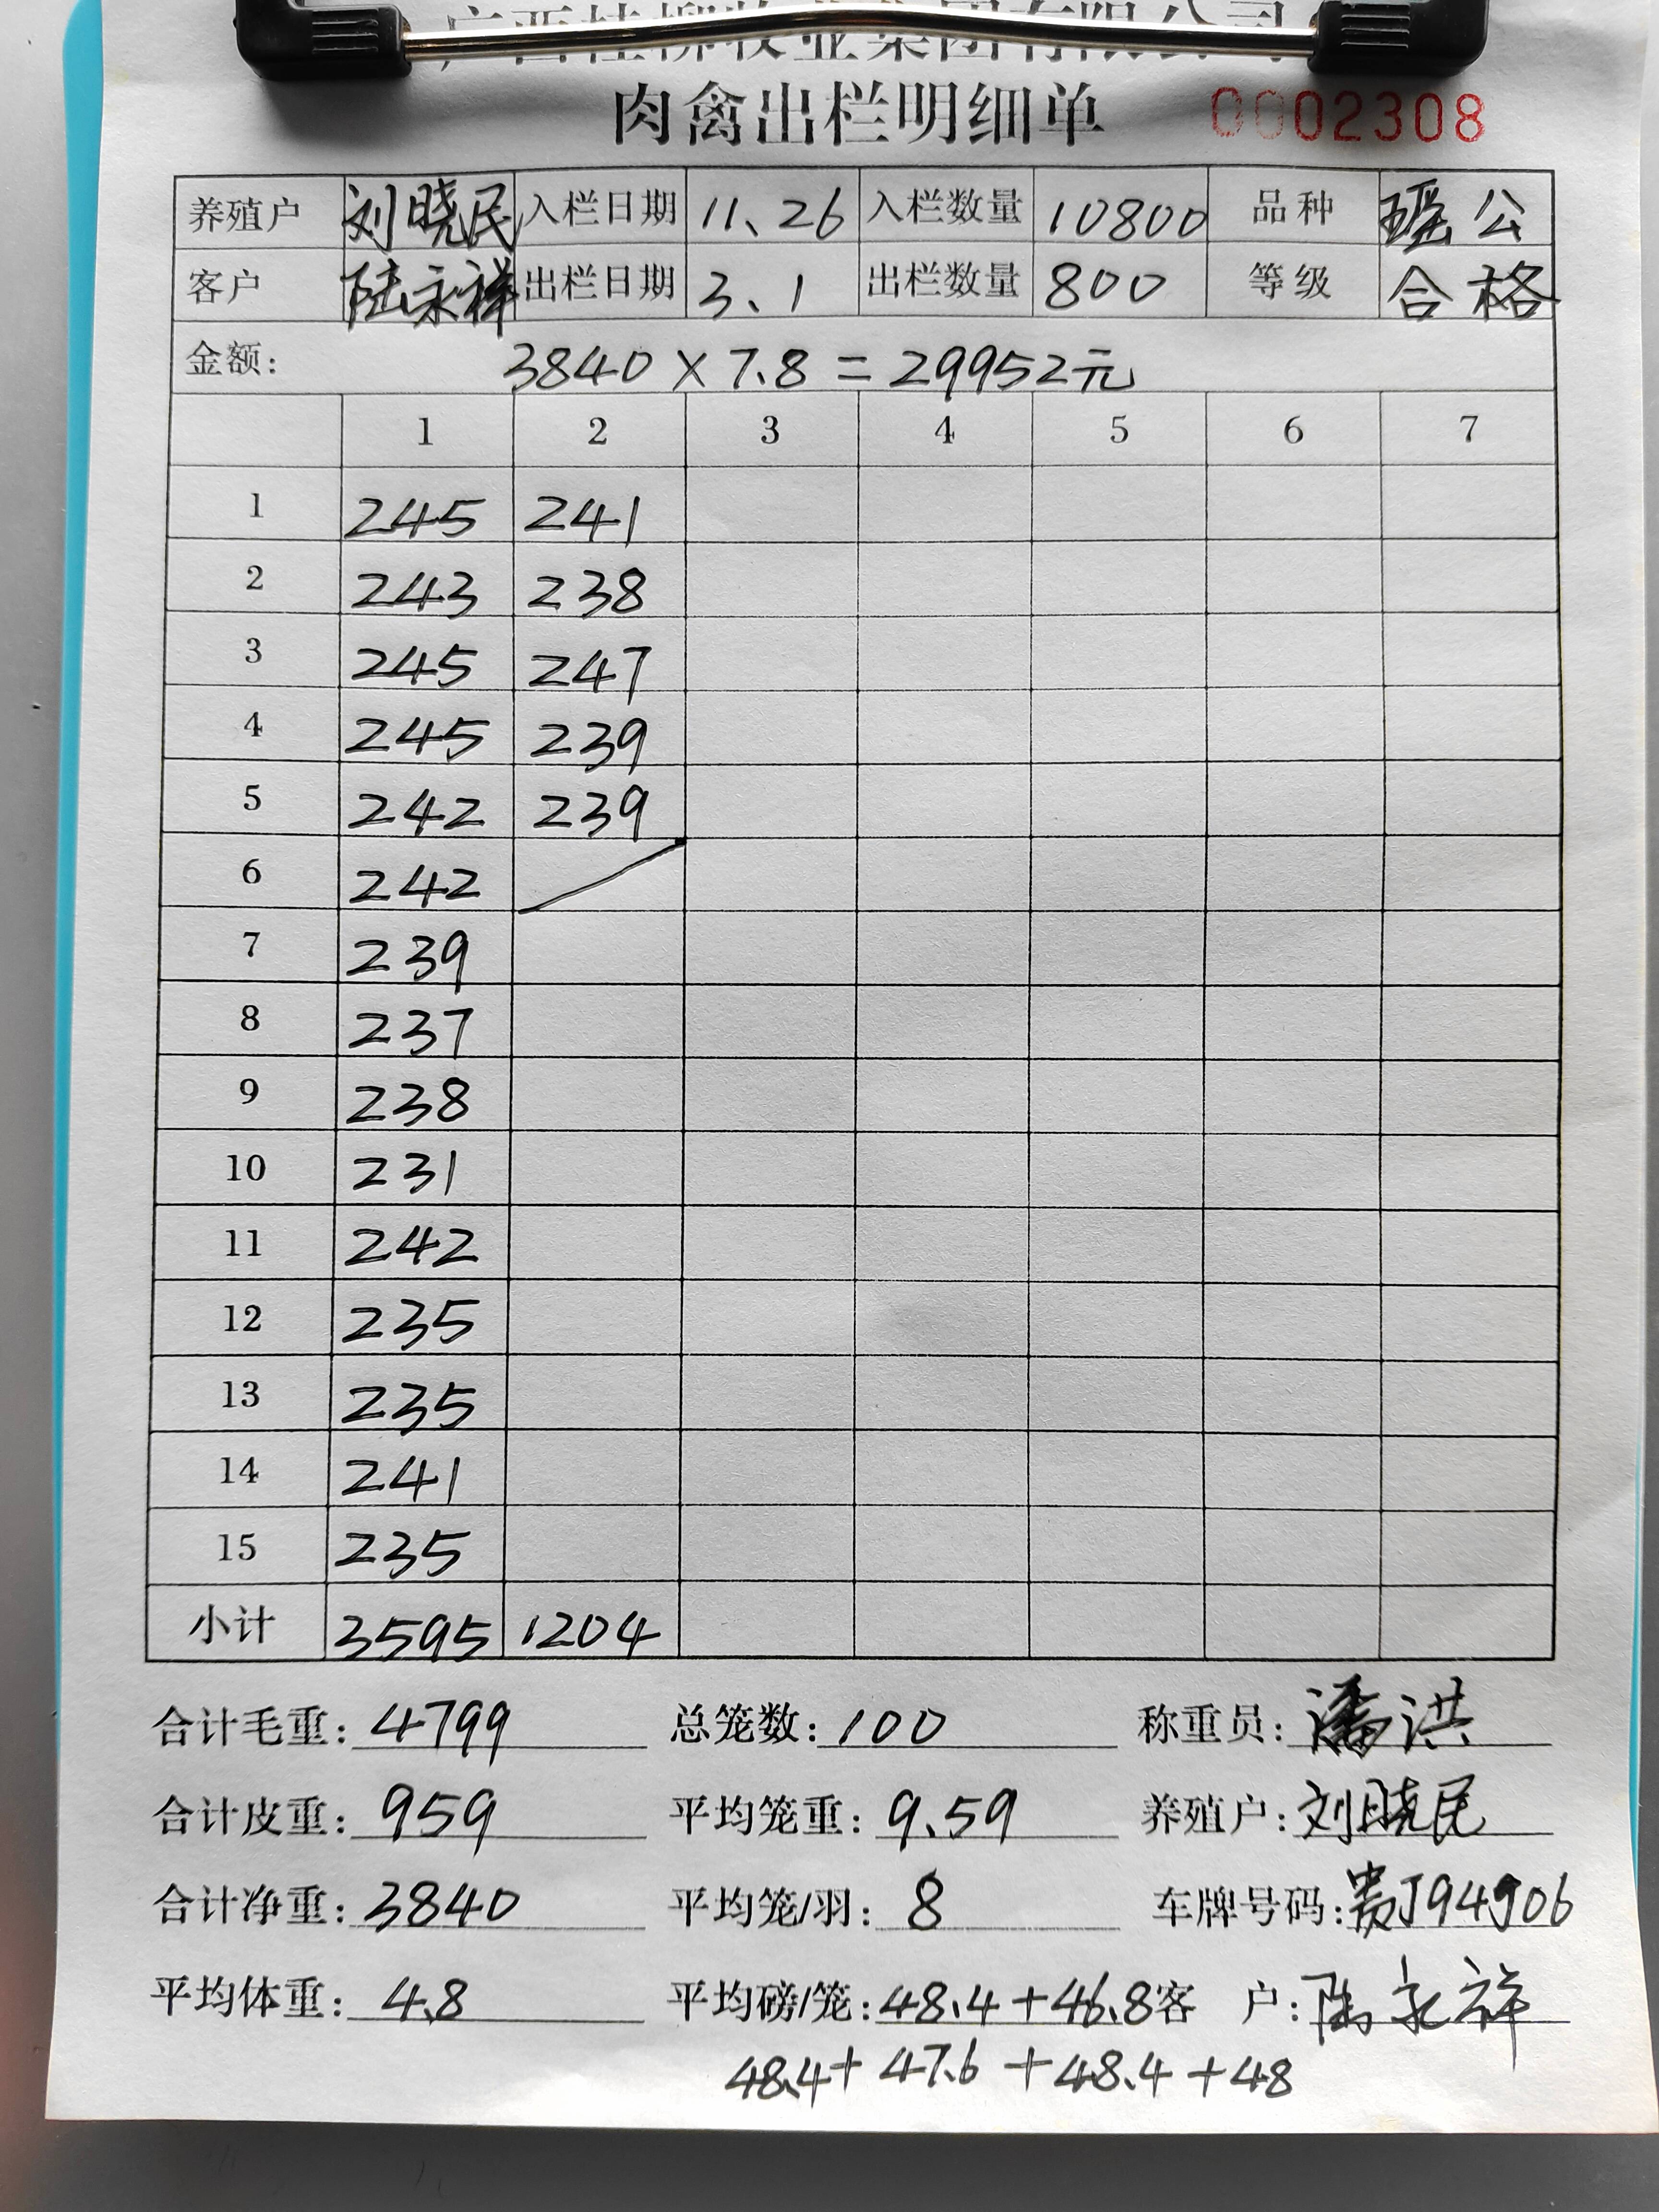 广西桂柳牧业集团有限公司
肉禽出栏明细单 0002308
养殖户 刘晓民 入栏日期 11、26 入栏数量 10800 品种 瑶公
客户 陆永祥 出栏日期 3、1 出栏数量 800 等级 合格
金额: 3840×7.8=29952元
1 2 3 4 5 6 7
1 245 241
2 243 238
3 245 247
4 245 239
5 242 239
6 242
7 239
8 237
9 238
10 231
11 242
12 235
13 235
14 241
15 235
小计 3595 1204
合计毛重: 4799 总笼数: 100 称重员: 潘洪
合计皮重: 959 平均笼重: 9.59 养殖户: 刘晓民
合计净重: 3840 平均笼/羽: 8 车牌号码: 贵J94J06
平均体重: 4.8 平均磅/笼: 48.4+46.8 客 户: 陆永祥
48.4+47.6+48.4+48